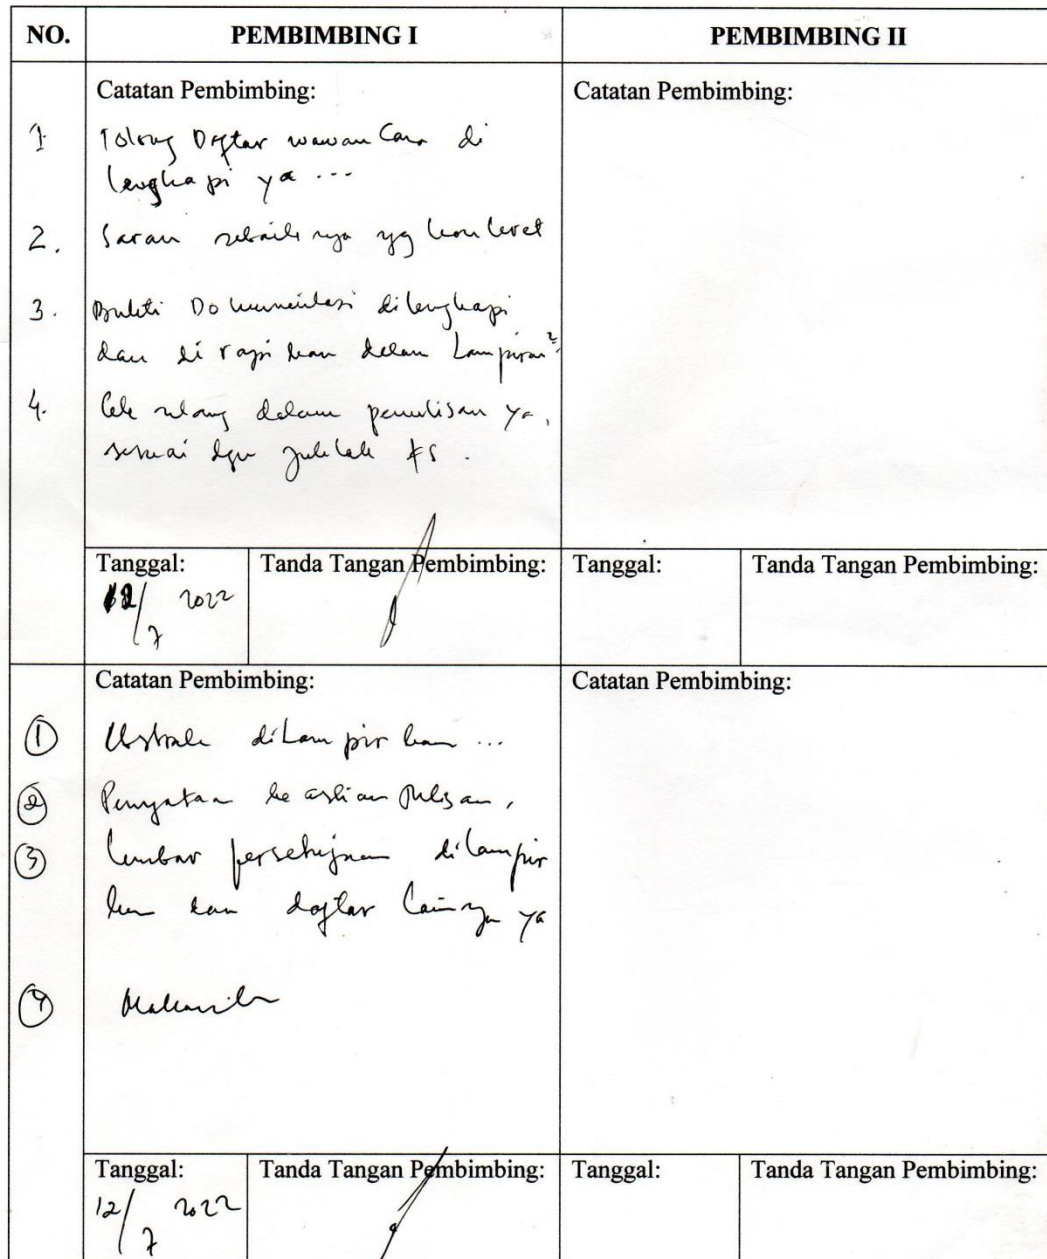 NO. PEMBIMBING I PEMBIMBING II
Catatan Pembimbing: Catatan Pembimbing:
1 Tolong Daftar wawancara di
lengkapi ya ...
2. Saran sebaiknya yg konkret
3. Bukti Dokumentasi dilengkapi
dan di rapi kan dalam Lampiran²
4. Cek ulang dalam penulisan ya,
sesuai dgn juklak
Tanggal: Tanda Tangan Pembimbing: Tanggal: Tanda Tangan Pembimbing:
12/7 2022
Catatan Pembimbing: Catatan Pembimbing:
1 Abstrak diLampir kan ...
2 Pernyataan ke aslian tulisan,
3 Lembar persetujuan dilampir
kan dan daftar Lainnya ya
4
Tanggal: Tanda Tangan Pembimbing: Tanggal: Tanda Tangan Pembimbing:
12/7 2022